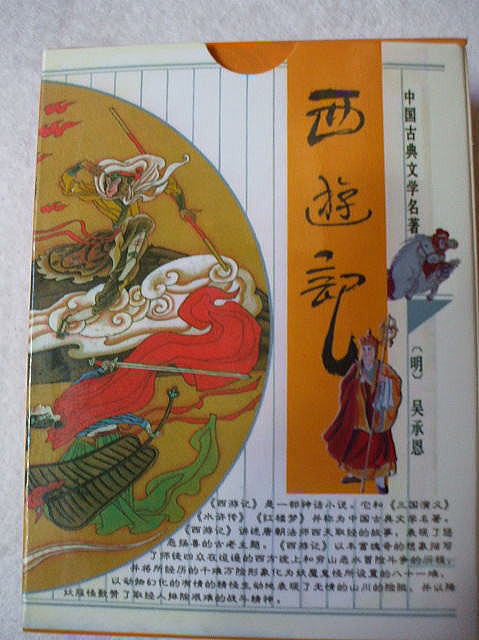 西遊記
中国古典文学名著
〔明〕 吴承恩
《西游记》是一部神话小说。它和《三国演义》
《水浒传》《红楼梦》并称为中国古典文学名著。
《西游记》讲述唐朝法师西天取经的故事，表现了惩
恶扬善的古老主题。《西游记》以丰富瑰奇的想象描写
了师徒四众在迢遥的西方途上和穷山恶水冒险斗争的历程，
并将所经历的千难万险形象化为妖魔鬼怪所设置的八十一难，
以动物幻化的有情的精怪生动地表现了无情的山川的险阻，并以降
妖服怪歌赞了取经人排除艰难的战斗精神。